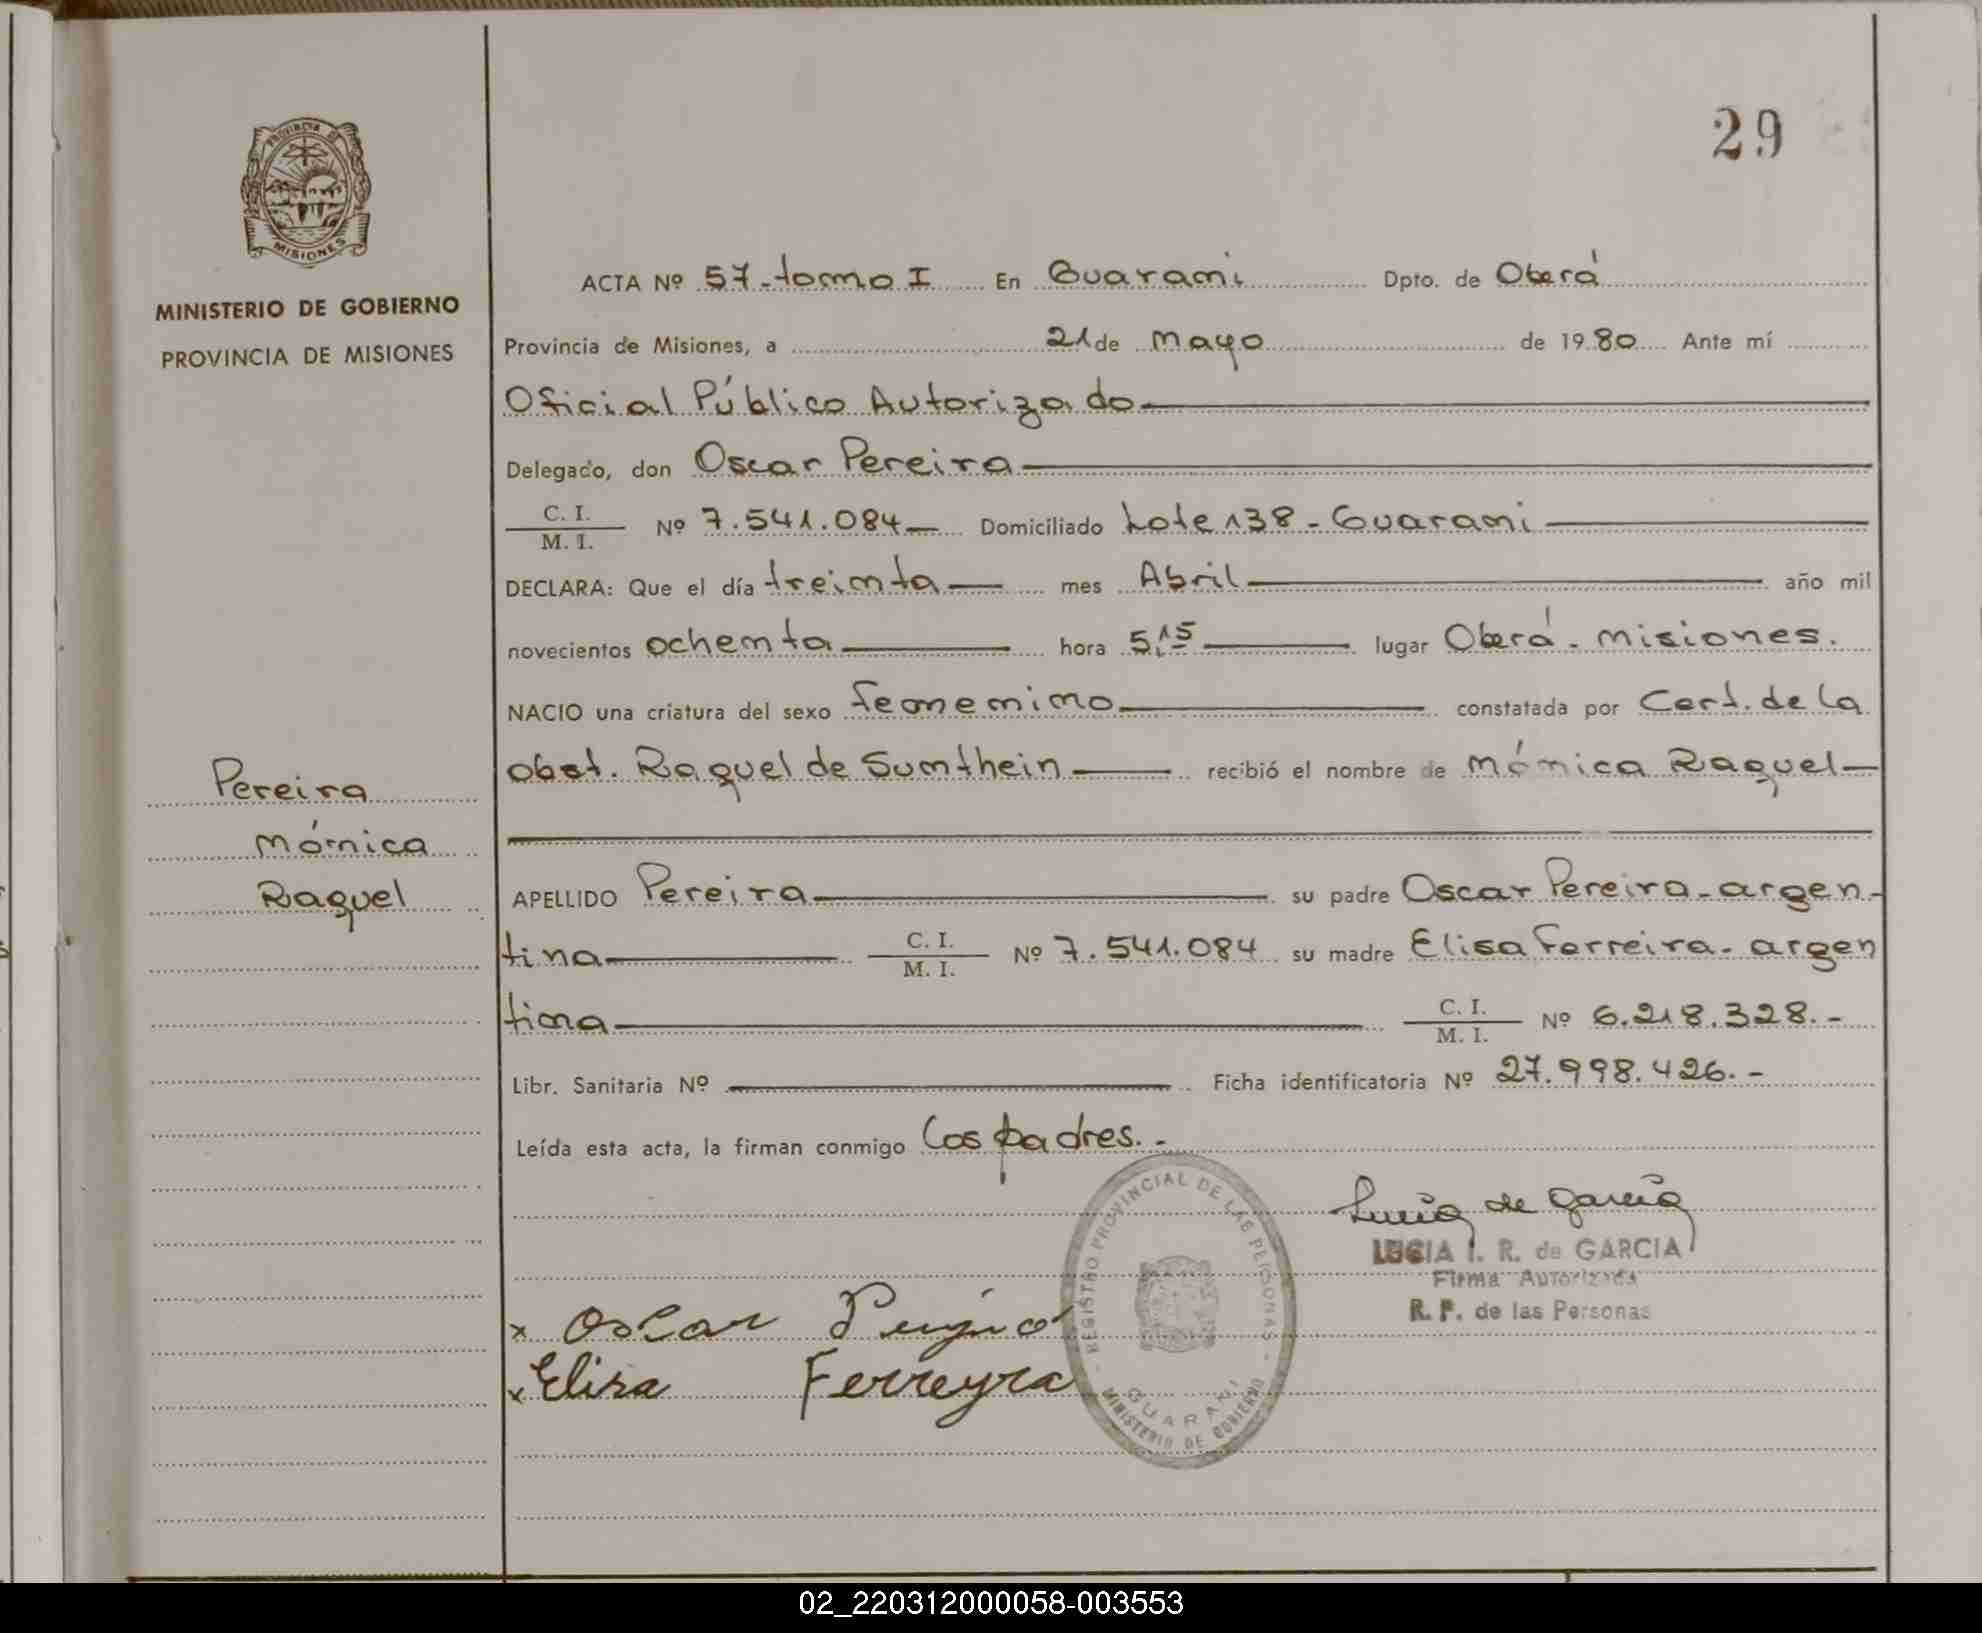 29
PROVINCIA DE
MISIONES
MINISTERIO DE GOBIERNO
PROVINCIA DE MISIONES
Pereira
Mónica
Raquel
ACTA Nº 57-tomo I En Guarani Dpto. de Oberá
Provincia de Misiones, a 21 de Mayo de 1980 Ante mí
Oficial Público Autorizado
Delegado, don Oscar Pereira
C. I.
M. I. Nº 7.541.084 Domiciliado Lote 138 - Guarani
DECLARA: Que el día treinta mes Abril año mil
novecientos ochenta hora 5,15 lugar Oberá - Misiones.
NACIO una criatura del sexo femenino constatada por Cert. de la
obst. Raquel de Sumthein recibió el nombre de Mónica Raquel
APELLIDO Pereira su padre Oscar Pereira - argen-
tina C. I. M. I. Nº 7.541.084 su madre Elisa Ferreira - argen
tina C. I. M. I. Nº 6.218.328.-
Libr. Sanitaria Nº Ficha identificatoria Nº 27.998.426.-
Leída esta acta, la firman conmigo los padres.-
Lucia de Garcia
LUCIA I. R. de GARCIA
Firma Autorizada
R. P. de las Personas
REGISTRO PROVINCIAL DE LAS PERSONAS
GUARANI
MINISTERIO DE GOBIERNO
x Oscar
x Elisa Ferreyra
02_220312000058-003553